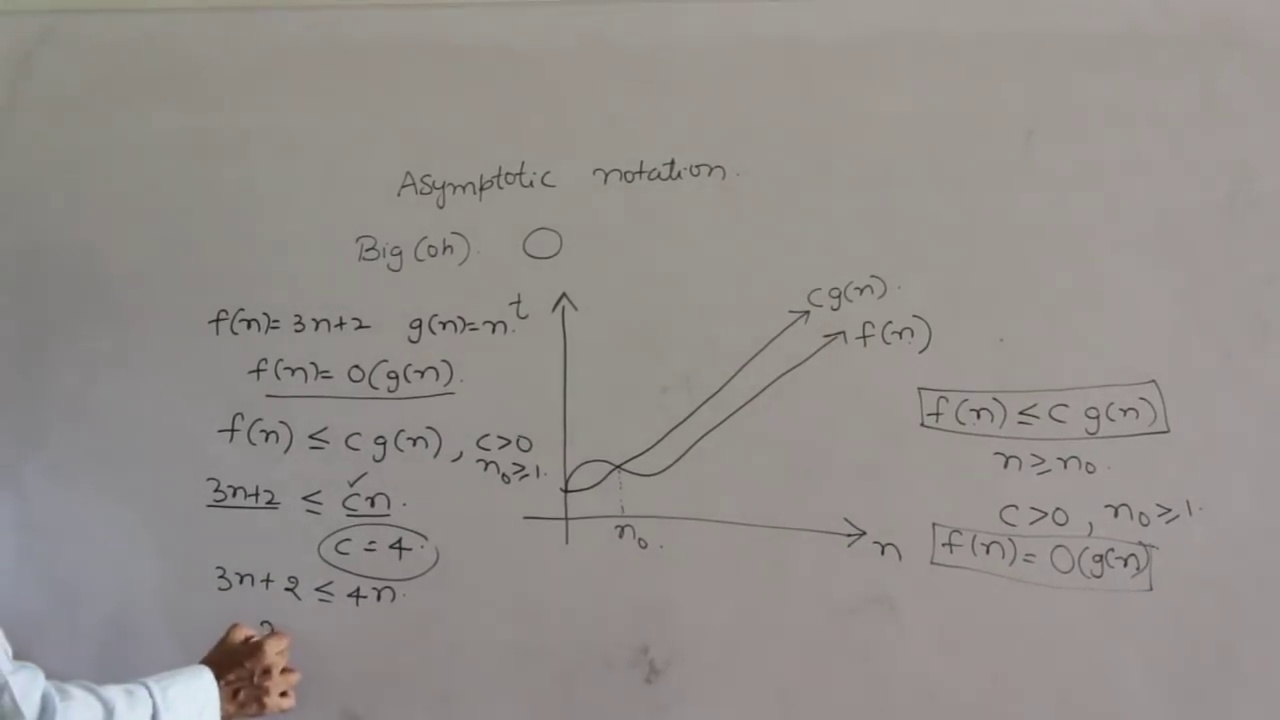 Asymptotic notation.
Big(oh). O
f(n)= 3n+2 g(n)=n.
f(n)= O(g(n).
f(n) ≤ c g(n), c>0
n₀≥1.
3n+2 ≤ cn.
c = 4.
3n+2 ≤ 4n.
t
cg(n).
f(n)
n₀.
n
f(n) ≤ c g(n)
n≥n₀.
c>0, n₀≥1.
f(n)= O(g(n)